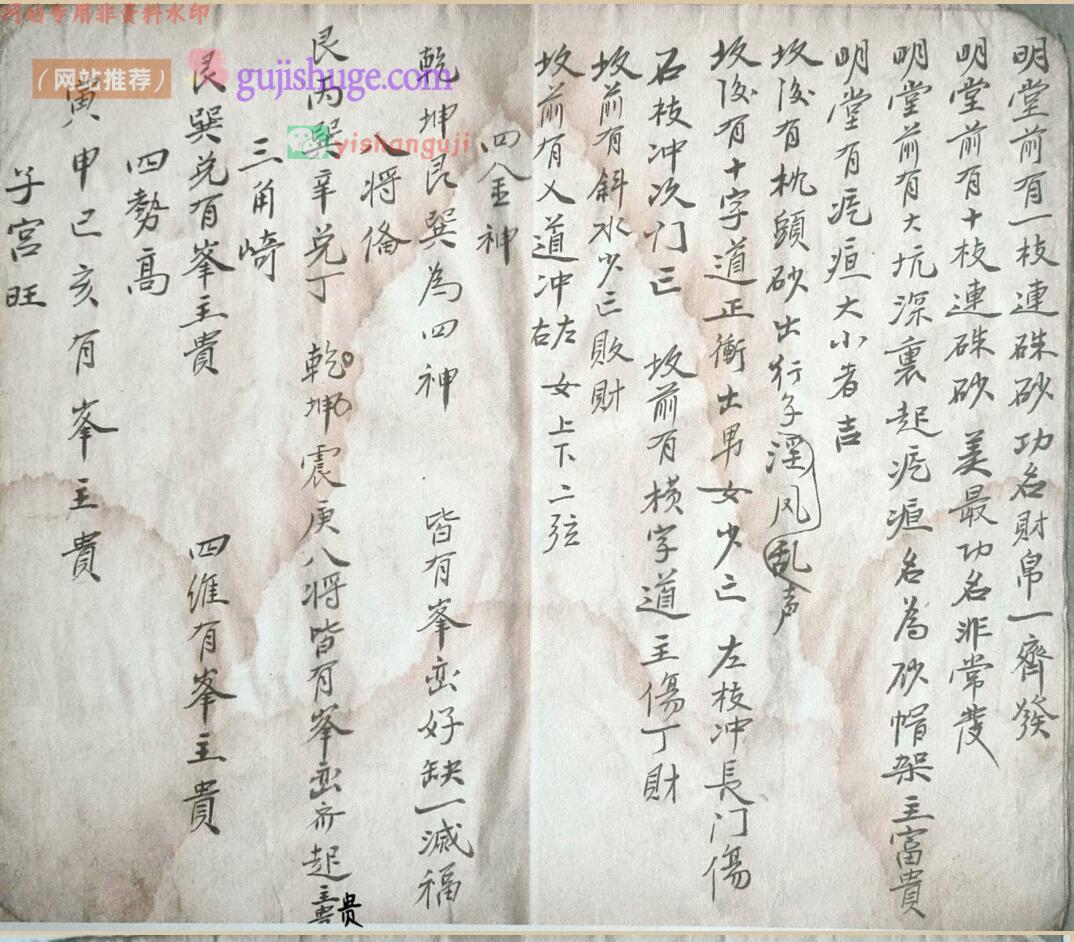 网站专用非资料水印
（网站推荐）
gujishuge.com
yishanguji
明堂前有一枝連硃砂 功名財帛一齊發
明堂前有十枝連硃砂 美最功名非常發
明堂前有大坑深裏起疙疸名為砂帽架主富貴
明堂有疙疸大小者吉
坟後有枕頭砂出行子淫风乱声
坟後有十字道正衝出男女少亡 左枝冲長门傷
右枝冲次门亡 坟前有横字道主傷丁財
坟前有斜水少亡敗財
坟前有乂道冲左右女上下二弦
四金神
乾坤艮巽為四神 皆有峯峦好缺一減福
八將俻
艮丙巽辛兑丁 乾坤震庚八将皆有峯峦齐起主貴
三角崎
艮巽兑有峯主貴 四維有峯主貴
四勢高
寅申已亥有峯主貴
子宫旺